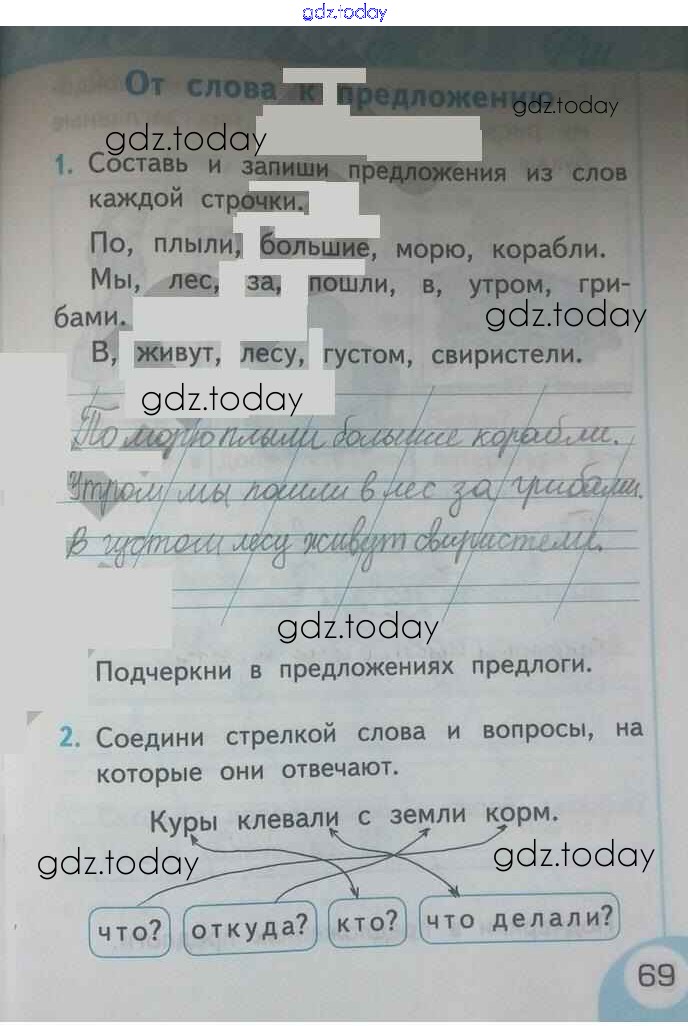 gdz.today
От слова к предложению
gdz.today
gdz.today
1. Составь и запиши предложения из слов
каждой строчки.
По, плыли, большие, морю, корабли.
Мы, лес, за, пошли, в, утром, гри-
бами.
gdz.today
В, живут, лесу, густом, свиристели.
gdz.today
По морю плыли большие корабли.
Утром мы пошли в лес за грибами.
В густом лесу живут свиристели.
gdz.today
Подчеркни в предложениях предлоги.
2. Соедини стрелкой слова и вопросы, на
которые они отвечают.
Куры клевали с земли корм.
gdz.today
gdz.today
что? откуда? кто? что делали?
69